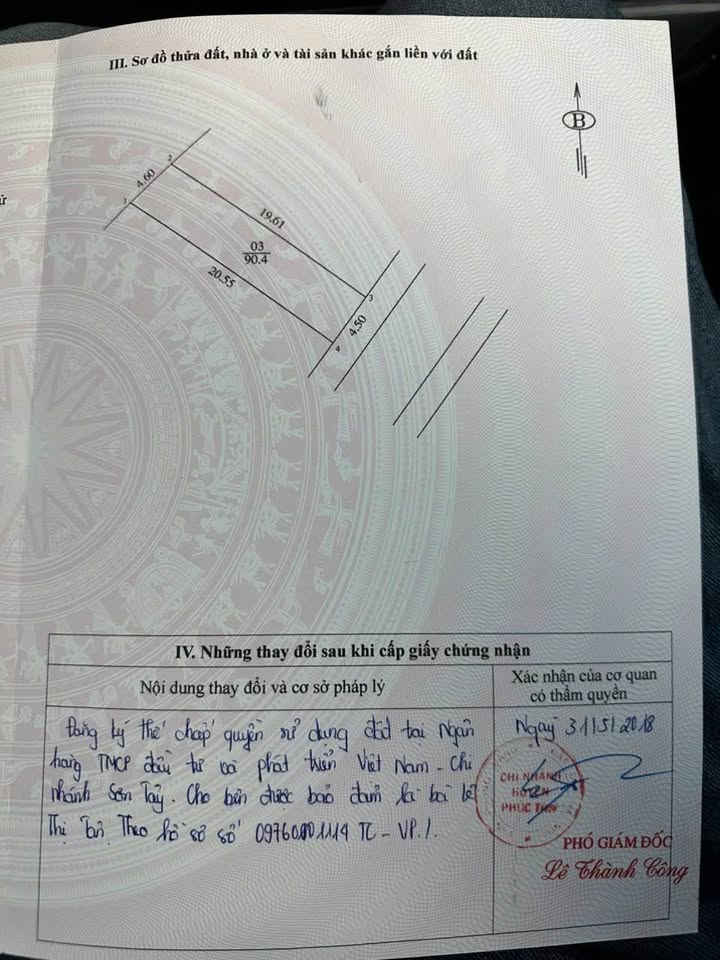 III. Sơ đồ thửa đất, nhà ở và tài sản khác gắn liền với đất
B
ử
1
4.60
2
19.61
03
90.4
20.55
3
4.50
4
IV. Những thay đổi sau khi cấp giấy chứng nhận
Nội dung thay đổi và cơ sở pháp lý
Xác nhận của cơ quan
có thẩm quyền
Đăng ký thế chấp quyền sử dụng đất tại Ngân
hàng TMCP đầu tư và phát triển Việt Nam - Chi
nhánh Sơn Tây. Cho bên được bảo đảm là bà Lê
Thị Theo hồ sơ số 1114 TC - VP./.
Ngày 31/5/2018
CHI NHÁNH
HUYỆN
PHÚC THỌ
PHÓ GIÁM ĐỐC
Lê Thành Công